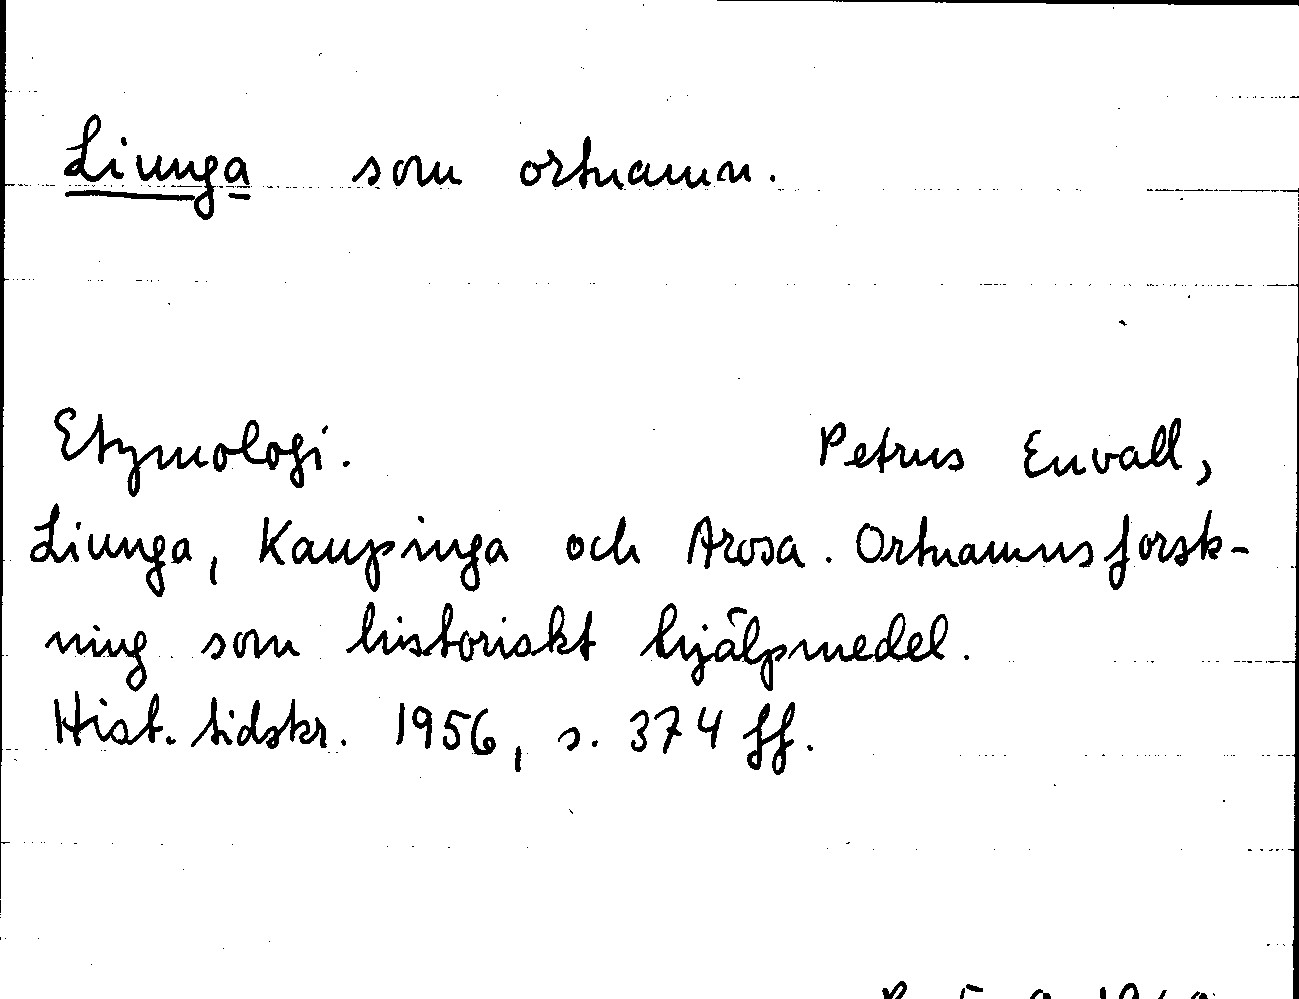 Liunga som ortnamn.
Etymologi. Petrus Envall,
Liunga, Kaupinga och Arosa. Ortnamnsforsk-
ning som historiskt hjälpmedel.
Hist. tidskr. 1956, s. 374 ff.